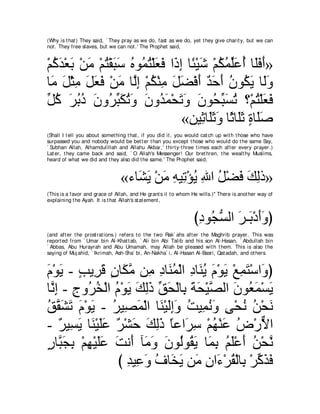 (Why is that) They said, `They pray as we do, fast as we do, yet they give charity, but we can not. They free slaves, but we can not.' The Prophet said,
«أَفَلَا أُعَلِّمُكُمْ شَيْئًا إِذَا فَعَلْتُمُوهُ سَبَقْتُمْ مَنْ بَعْدَكُمْ
وَلَا يَكُونُ أَحَدٌ أَفْضَلَ مِنْكُمْ إِلَّا مَنْ فَعَلَ مِثْلَ مَا
فَعَلْتُمْ؟ تُسَبِّحُونَ وَتَحْمَدُونَ وَتُكَبِّرُونَ دُبُرَ كُلِّ
صَلَاةٍ ثَلَاثًا وَثَلَاثِين»
(Shall I tell you about something that, if you did it, you would catch up with those who have surpassed you and nobody would be better than you except those who would do the same Say, `Subhan Allah, Alhamdulillah and Allahu Akbar,' thirty-three times each after every prayer.) Later, they came back and said, `O Allah's Messenger! Our brethren, the wealthy Muslims, heard of what we did and they also did the same.' The Prophet said,
«ذَلِكَ فَضْلُ اللهِ يُؤْتِيهِ مَنْ يَشَاء»
(This is a favor and grace of Allah, and He grants it to whom He wills.)" There is another way of explaining the Ayah. It is that Allah's statement,
(وَأَدْبَـرَ السُّجُودِ)
(and after the prostrations.) refers to the two Rak`ahs after the Maghrib prayer. This was reported from `Umar bin Al-Khattab, `Ali bin Abi Talib and his son Al-Hasan, `Abdullah bin `Abbas, Abu Hurayrah and Abu Umamah, may Allah be pleased with them. This is also the saying of Mujahid, `Ikrimah, Ash-Sha`bi, An-Nakha`i, Al-Hasan Al-Basri, Qatadah, and others.
(وَاسْتَمِعْ يَوْمَ يُنَادِ الْمُنَادِ مِن مَّكَانٍ قَرِيبٍ - يَوْمَ
يَسْمَعُونَ الصَّيْحَةَ بِالْحَقِّ ذَلِكَ يَوْمُ الْخُرُوجِ - إِنَّا
نَحْنُ نُحْىِ وَنُمِيتُ وَإِلَيْنَا الْمَصِيرُ - يَوْمَ تَشَقَّقُ
الاٌّرْضُ عَنْهُمْ سِرَاعاً ذَلِكَ حَشْرٌ عَلَيْنَا يَسِيرٌ -
نَّحْنُ أَعْلَمُ بِمَا يَقُولُونَ وَمَآ أَنتَ عَلَيْهِمْ بِجَبَّارٍ
فَذَكِّرْ بِالْقُرْءَانِ مَن يَخَافُ وَعِيدِ )